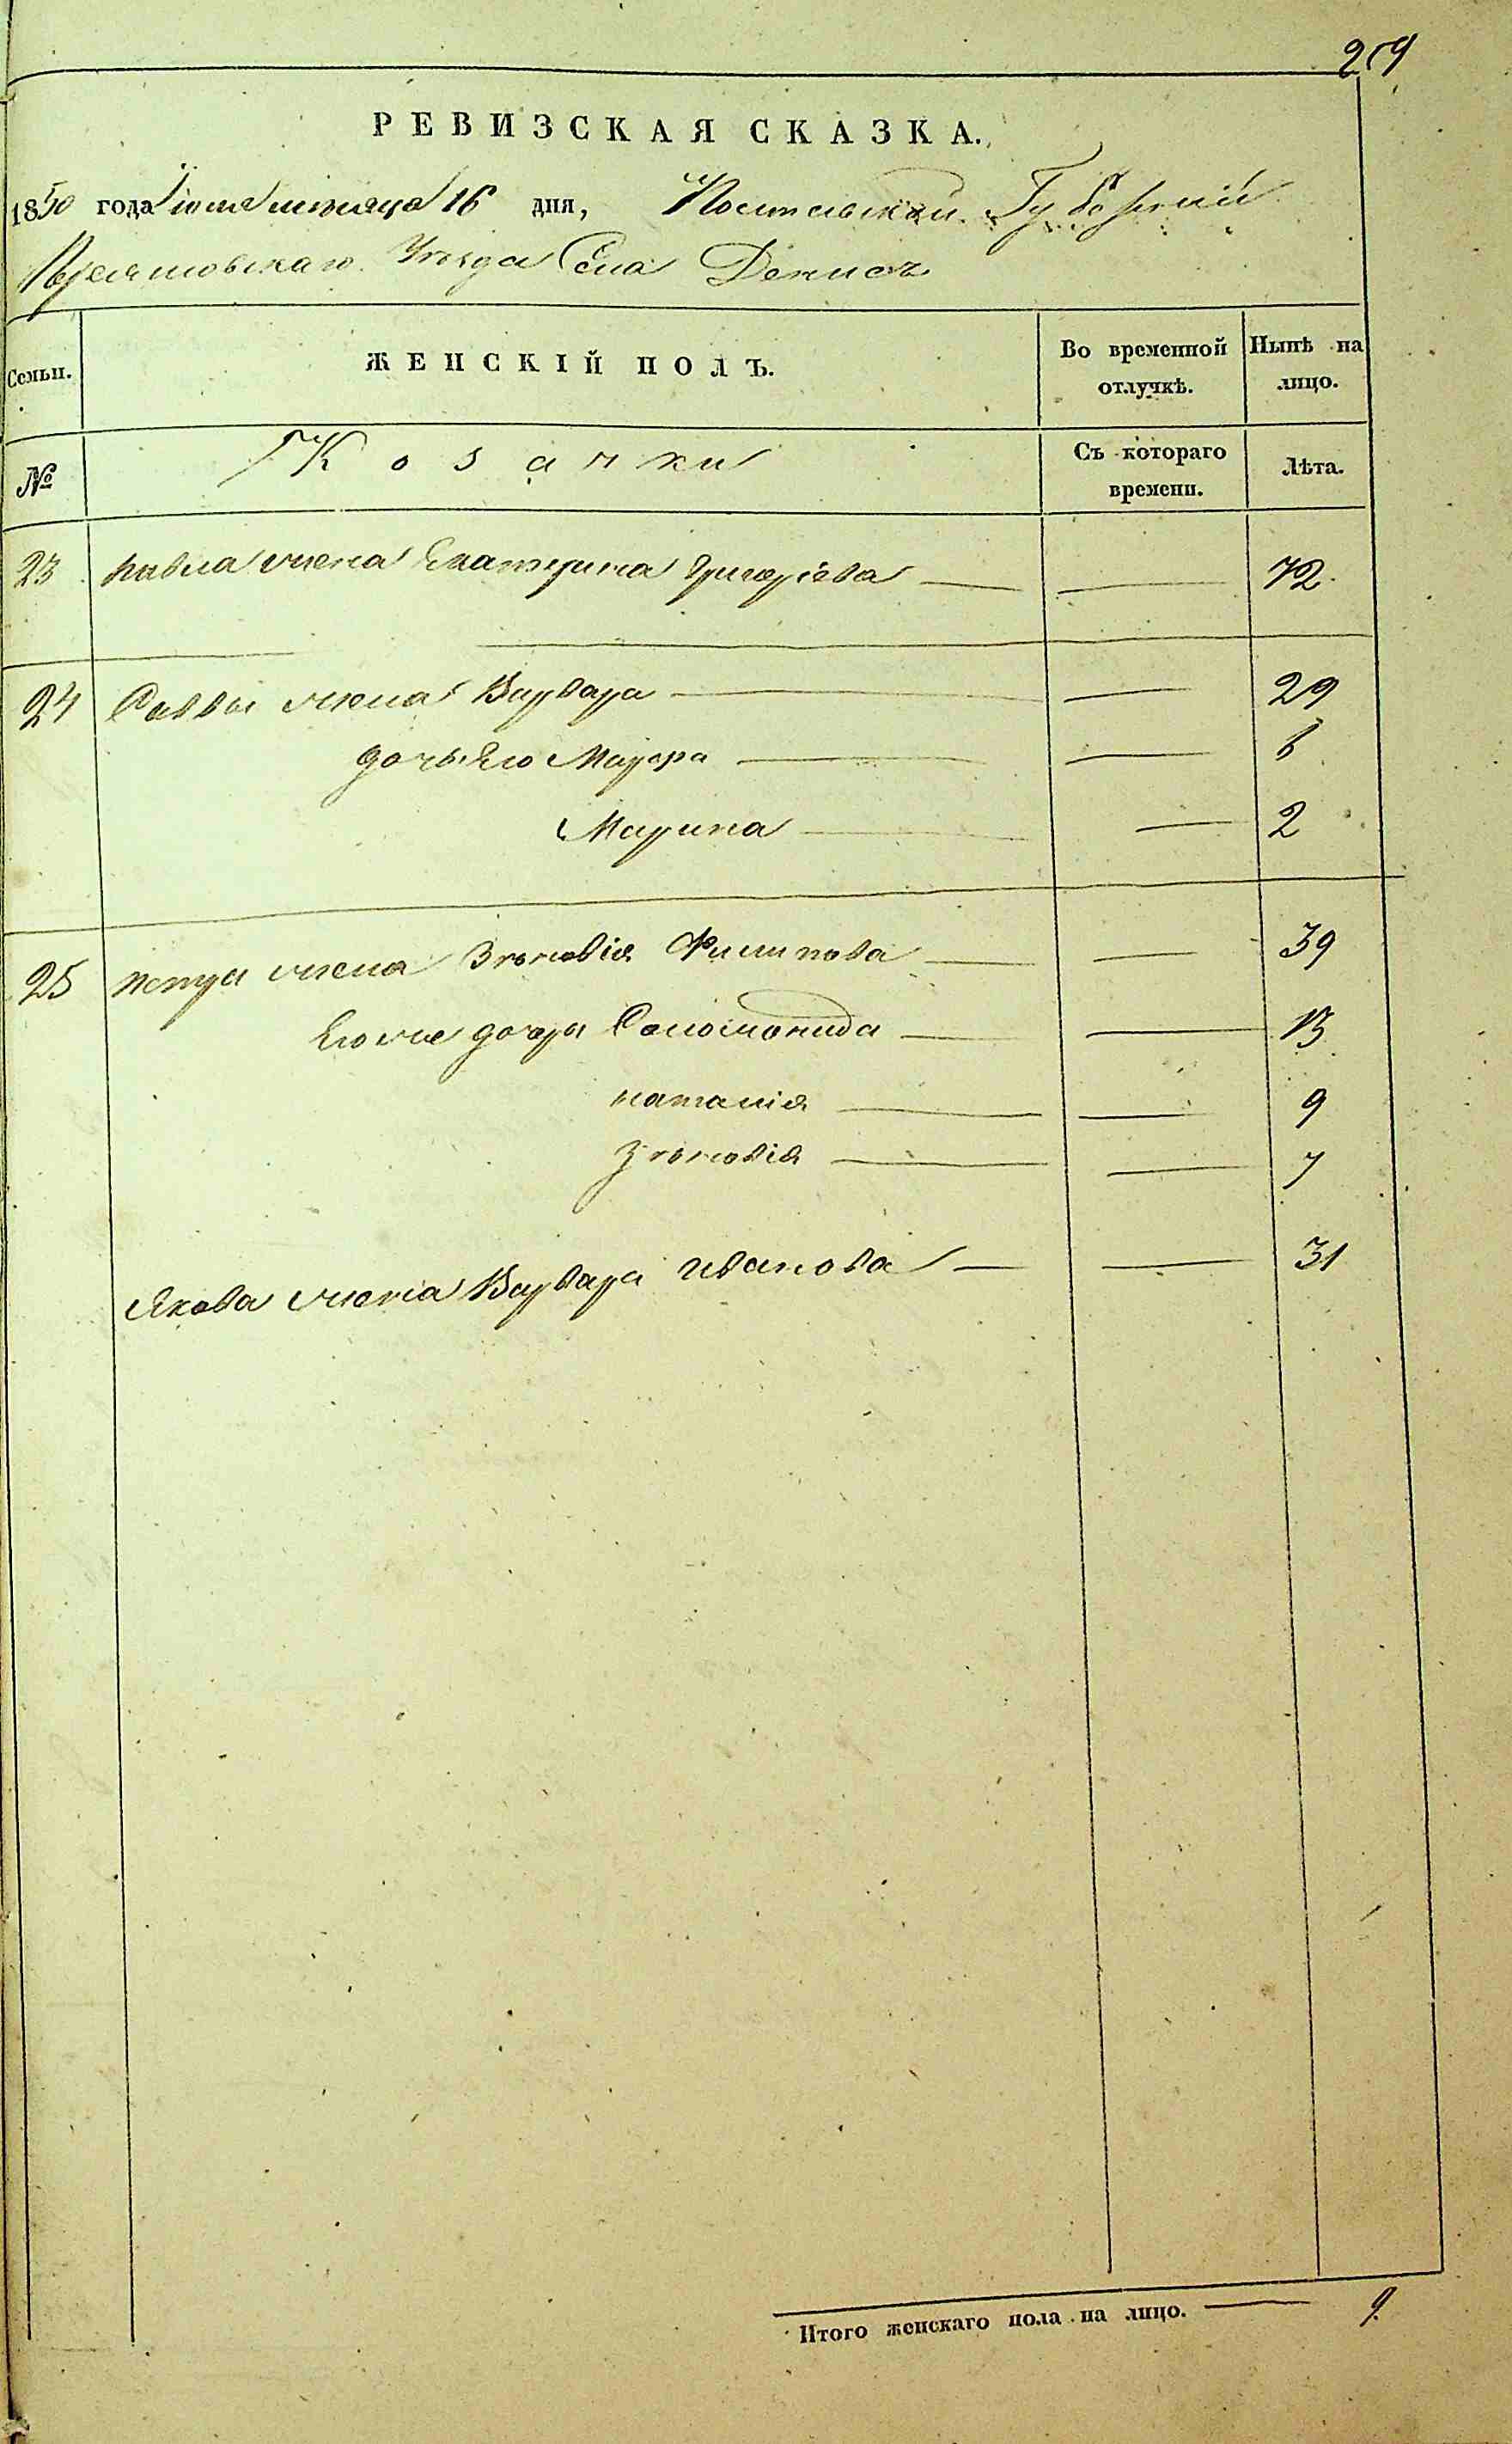 259
РЕВИЗСКАЯ СКАЗКА.
1850 года Іюля месяца 16 дня, Полтавской Губерніи
Переяславскаго Уезда Села Денисъ
Семьи. ЖЕНСКІЙ ПОЛЪ. Во временной отлучкѣ. Нынѣ на лицо.
№ Козачки Съ котораго времени. Лѣта.
23 Павла жена Екатерина Григоріева — — 72.
24 Саввы жена Варвара — — 29
дочь Его Мавра — — 6
Марина — — 2
25 Петра жена Зѣновія Филипова — — 39
Его же дочери Соломонида — — 13
Наталія — — 9
Зѣновія — — 7
Якова жена Варвара Иванова — — 31
Итого женскаго пола на лицо. — 9.